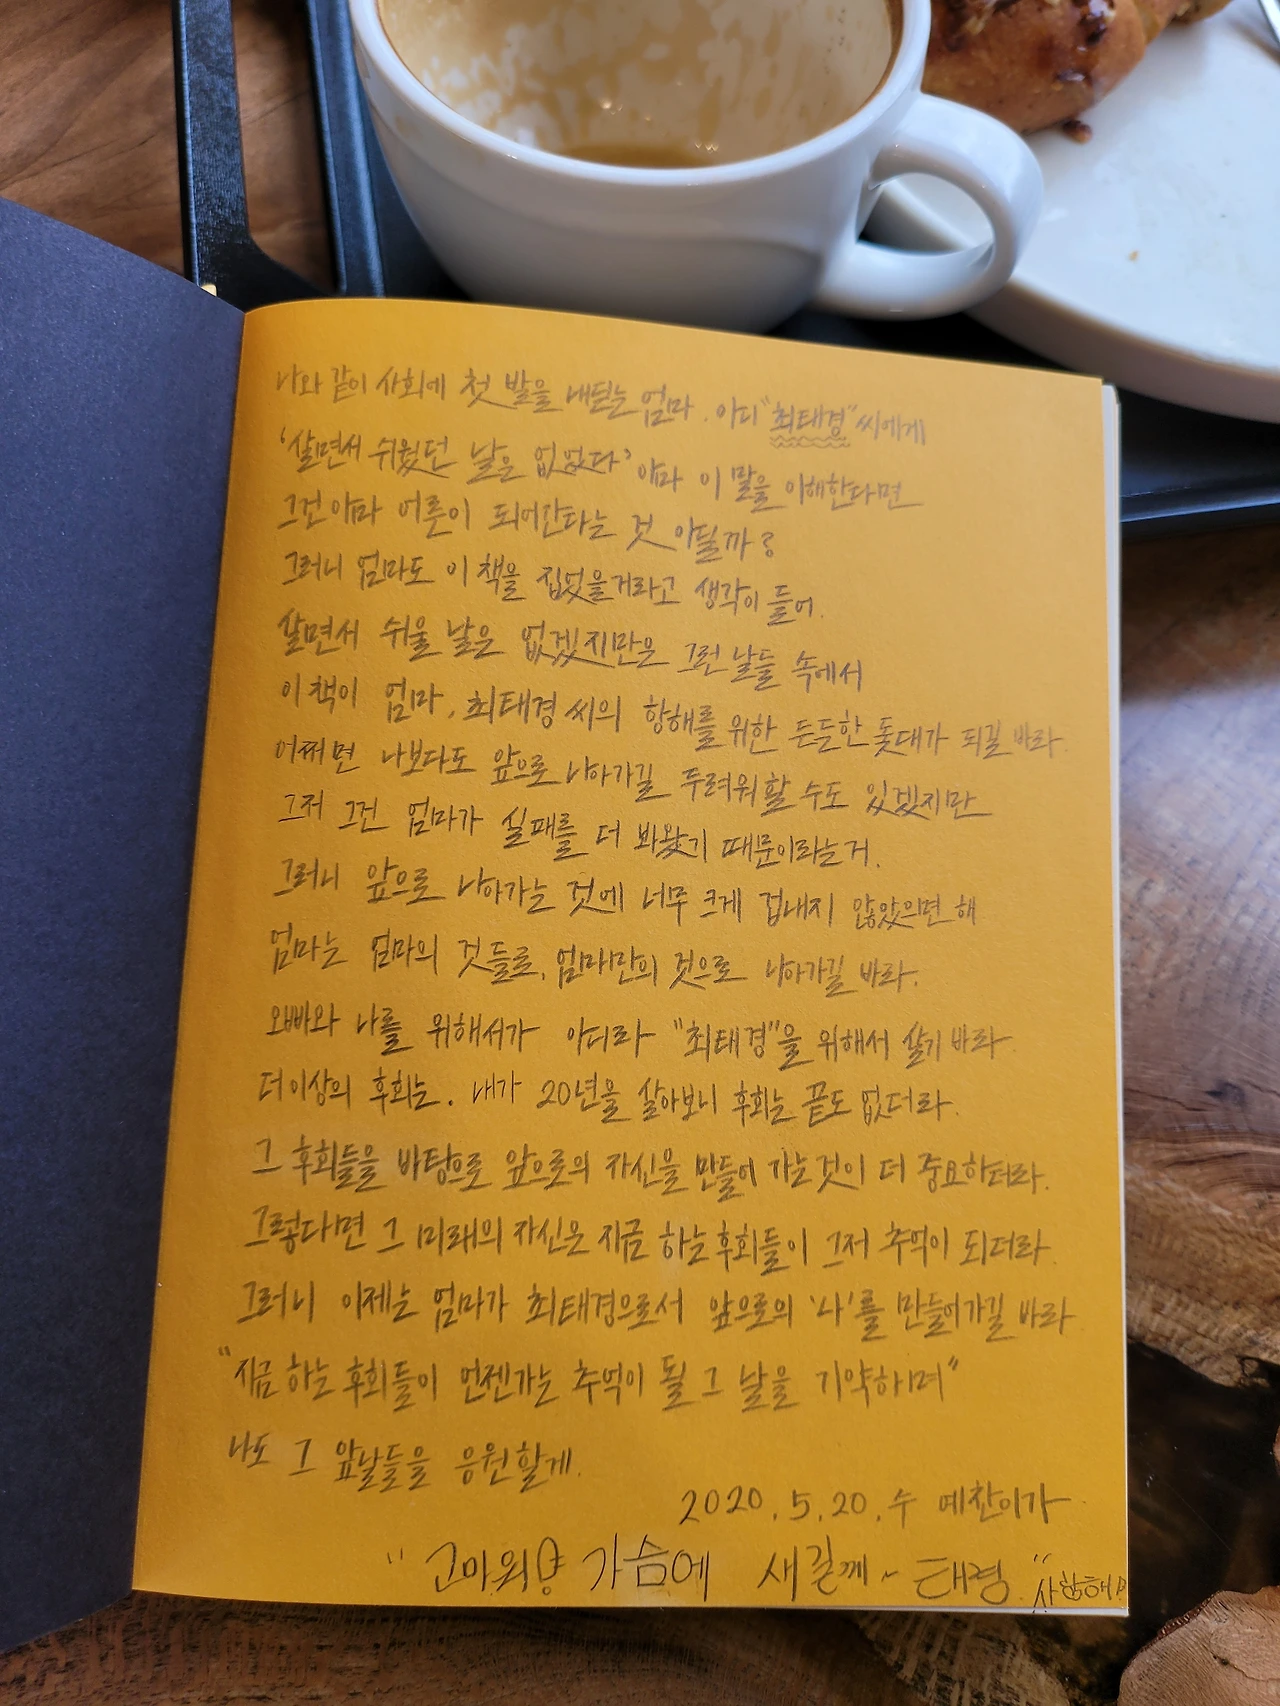 나와 같이 사회에 첫 발을 내딛는 엄마. 아니 "최태경"씨에게
'살면서 쉬웠던 날은 없었다' 아마 이 말을 이해한다면
그건 아마 어른이 되어간다는 것 아닐까?
그러니 엄마도 이 책을 집었을거라고 생각이 들어.
살면서 쉬울 날은 없겠지만은 그런 날들 속에서
이 책이 엄마, 최태경 씨의 항해를 위한 든든한 돛대가 되길 바라.
어쩌면 나보다도 앞으로 나아가길 두려워할 수도 있겠지만
그저 그건 엄마가 실패를 더 봐왔기 때문이라는거.
그러니 앞으로 나아가는 것에 너무 크게 겁내지 않았으면 해
엄마는 엄마의 것들로, 엄마만의 것으로 나아가길 바라.
오빠와 나를 위해서가 아니라 "최태경"을 위해서 살기 바라
더이상의 후회는. 내가 20년을 살아보니 후회는 끝도 없더라.
그 후회들을 바탕으로 앞으로의 자신을 만들어 가는것이 더 중요하더라.
그렇다면 그 미래의 자신은 지금 하는 후회들이 그저 추억이 되더라.
그러니 이제는 엄마가 최태경으로서 앞으로의 '나'를 만들어가길 바라
"지금 하는 후회들이 언젠가는 추억이 될 그 날을 기약하며"
나도 그 앞날들을 응원할게.
2020.5.20.수 예찬이가
"고마워양 가슴에 새길께~ 태경" 사랑해♡